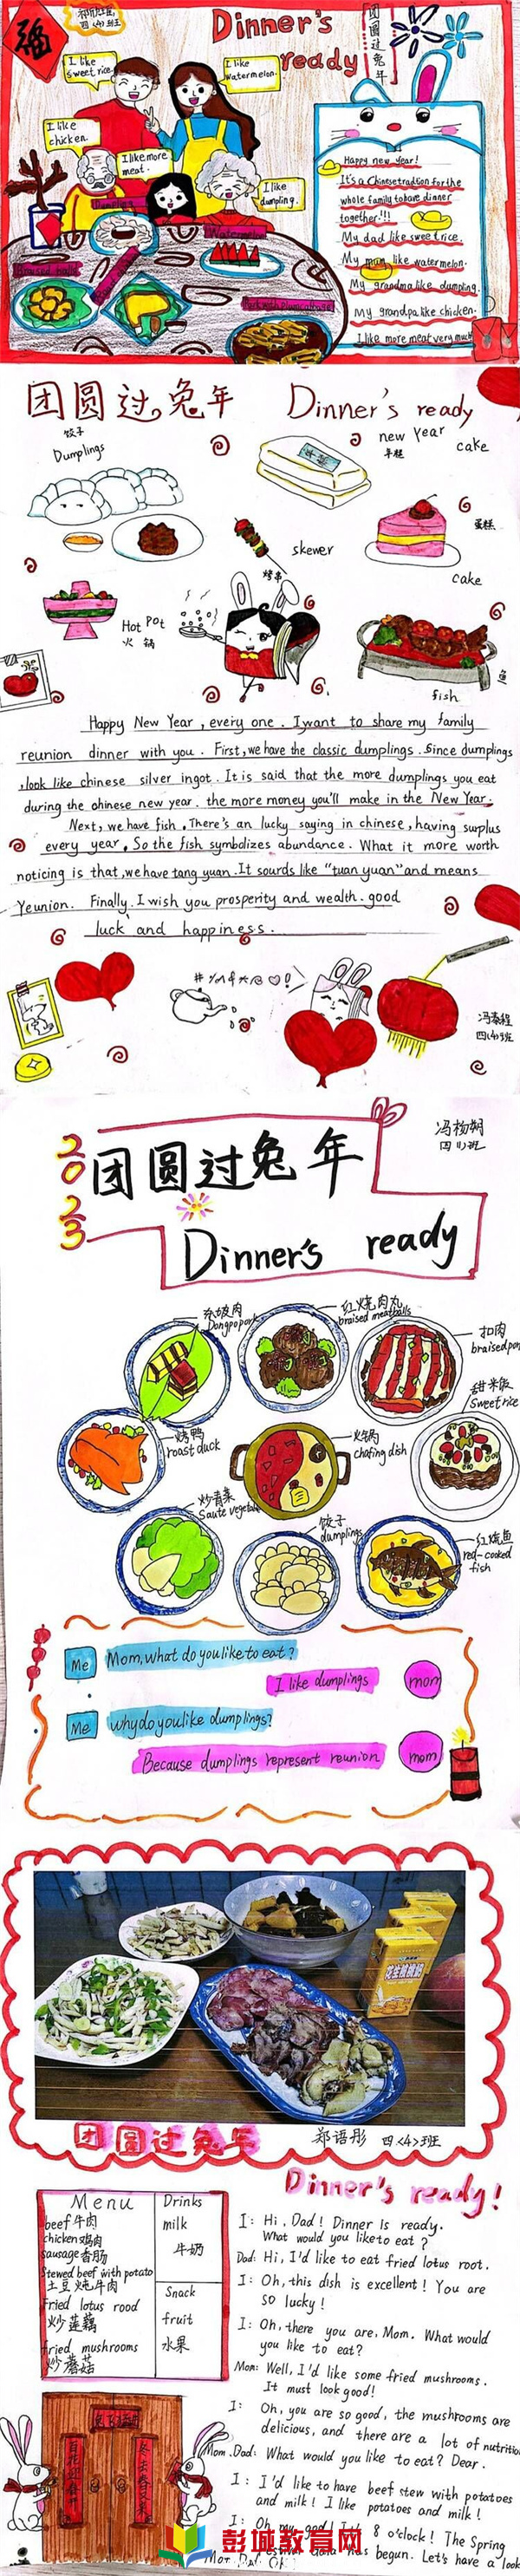 福
四(4)班
Dinner's
ready
团圆过兔年
I like
sweet rice.
I like
watermelon.
I like
chicken.
I like more
meat.
I like
dumpling.
Dumpling
Watermelon
Happy new year!
It's a Chinese tradtion for the
whole family to have dinner
together!!!
My dad like sweet rice.
My mum like watermelon.
My grandma like dumpling.
My grandpa like chicken.
I like more meat very much
团圆过兔年 Dinner's ready
饺子
Dumplings
new year cake
年糕
蛋糕
cake
skewer
烤串
Hot Pot
火锅
鱼
fish
Happy New Year, every one. I want to share my family
reunion dinner with you. First, we have the classic dumplings. Since dumplings
look like chinese silver ingot. It is said that the more dumplings you eat
during the chinese new year. the more money you'll make in the New Year.
Next, we have fish. There's an lucky saying in chinese, having surplus
every year. So the fish symbolizes abundance. What it more worth
noticing is that, we have tang yuan. It sourds like "tuan yuan" and means
Yeunion. Finally. I wish you prosperity and wealth. good
luck and happiness.
四(4)班
2023
团圆过兔年
冯杨朔
四(1)班
Dinner's ready
东坡肉
Dongpo pork
红烧肉丸
braised meatballs
扣肉
braised por
甜米饭
Sweet rice
烤鸭
roast duck
火锅
chafing dish
炒青菜
Saute vegetab
饺子
dumplings
红烧鱼
red-cooked
fish
Me Mom, what do you like to eat?
I like dumplings mom
Me why do you like dumplings?
Because dumplings represent reunion mom
花生核桃奶
团圆过兔年
郑语彤 四(4)班
Dinner's ready!
Menu
beef 牛肉
chicken 鸡肉
sausage 香肠
Stewed beef with potato
土豆炖牛肉
Fried lotus rood
炒莲藕
fried mushrooms
炒蘑菇
Drinks
milk
牛奶
Snack
fruit
水果
I: Hi, Dad! Dinner Is ready.
What would you like to eat?
Dad: Hi, I'd like to eat fried lotus root.
I: Oh, this dish is excellent! You are
so lucky!
I: Oh, there you are, Mom. What would
you like to eat?
Mom: Well, I'd like some fried mushrooms.
It must look good!
I: Oh, you are so good, the mushrooms are
delicious, and there are a lot of nutrition
Mom. Dad: What would you like to eat? Dear.
I: I'd like to have beef stew with potatoes
and milk! I like potatoes and milk!
I: Oh my god! It's 8 o'clock! The Spring
Festival Gala has begun. Let's have a look
彭城教育网